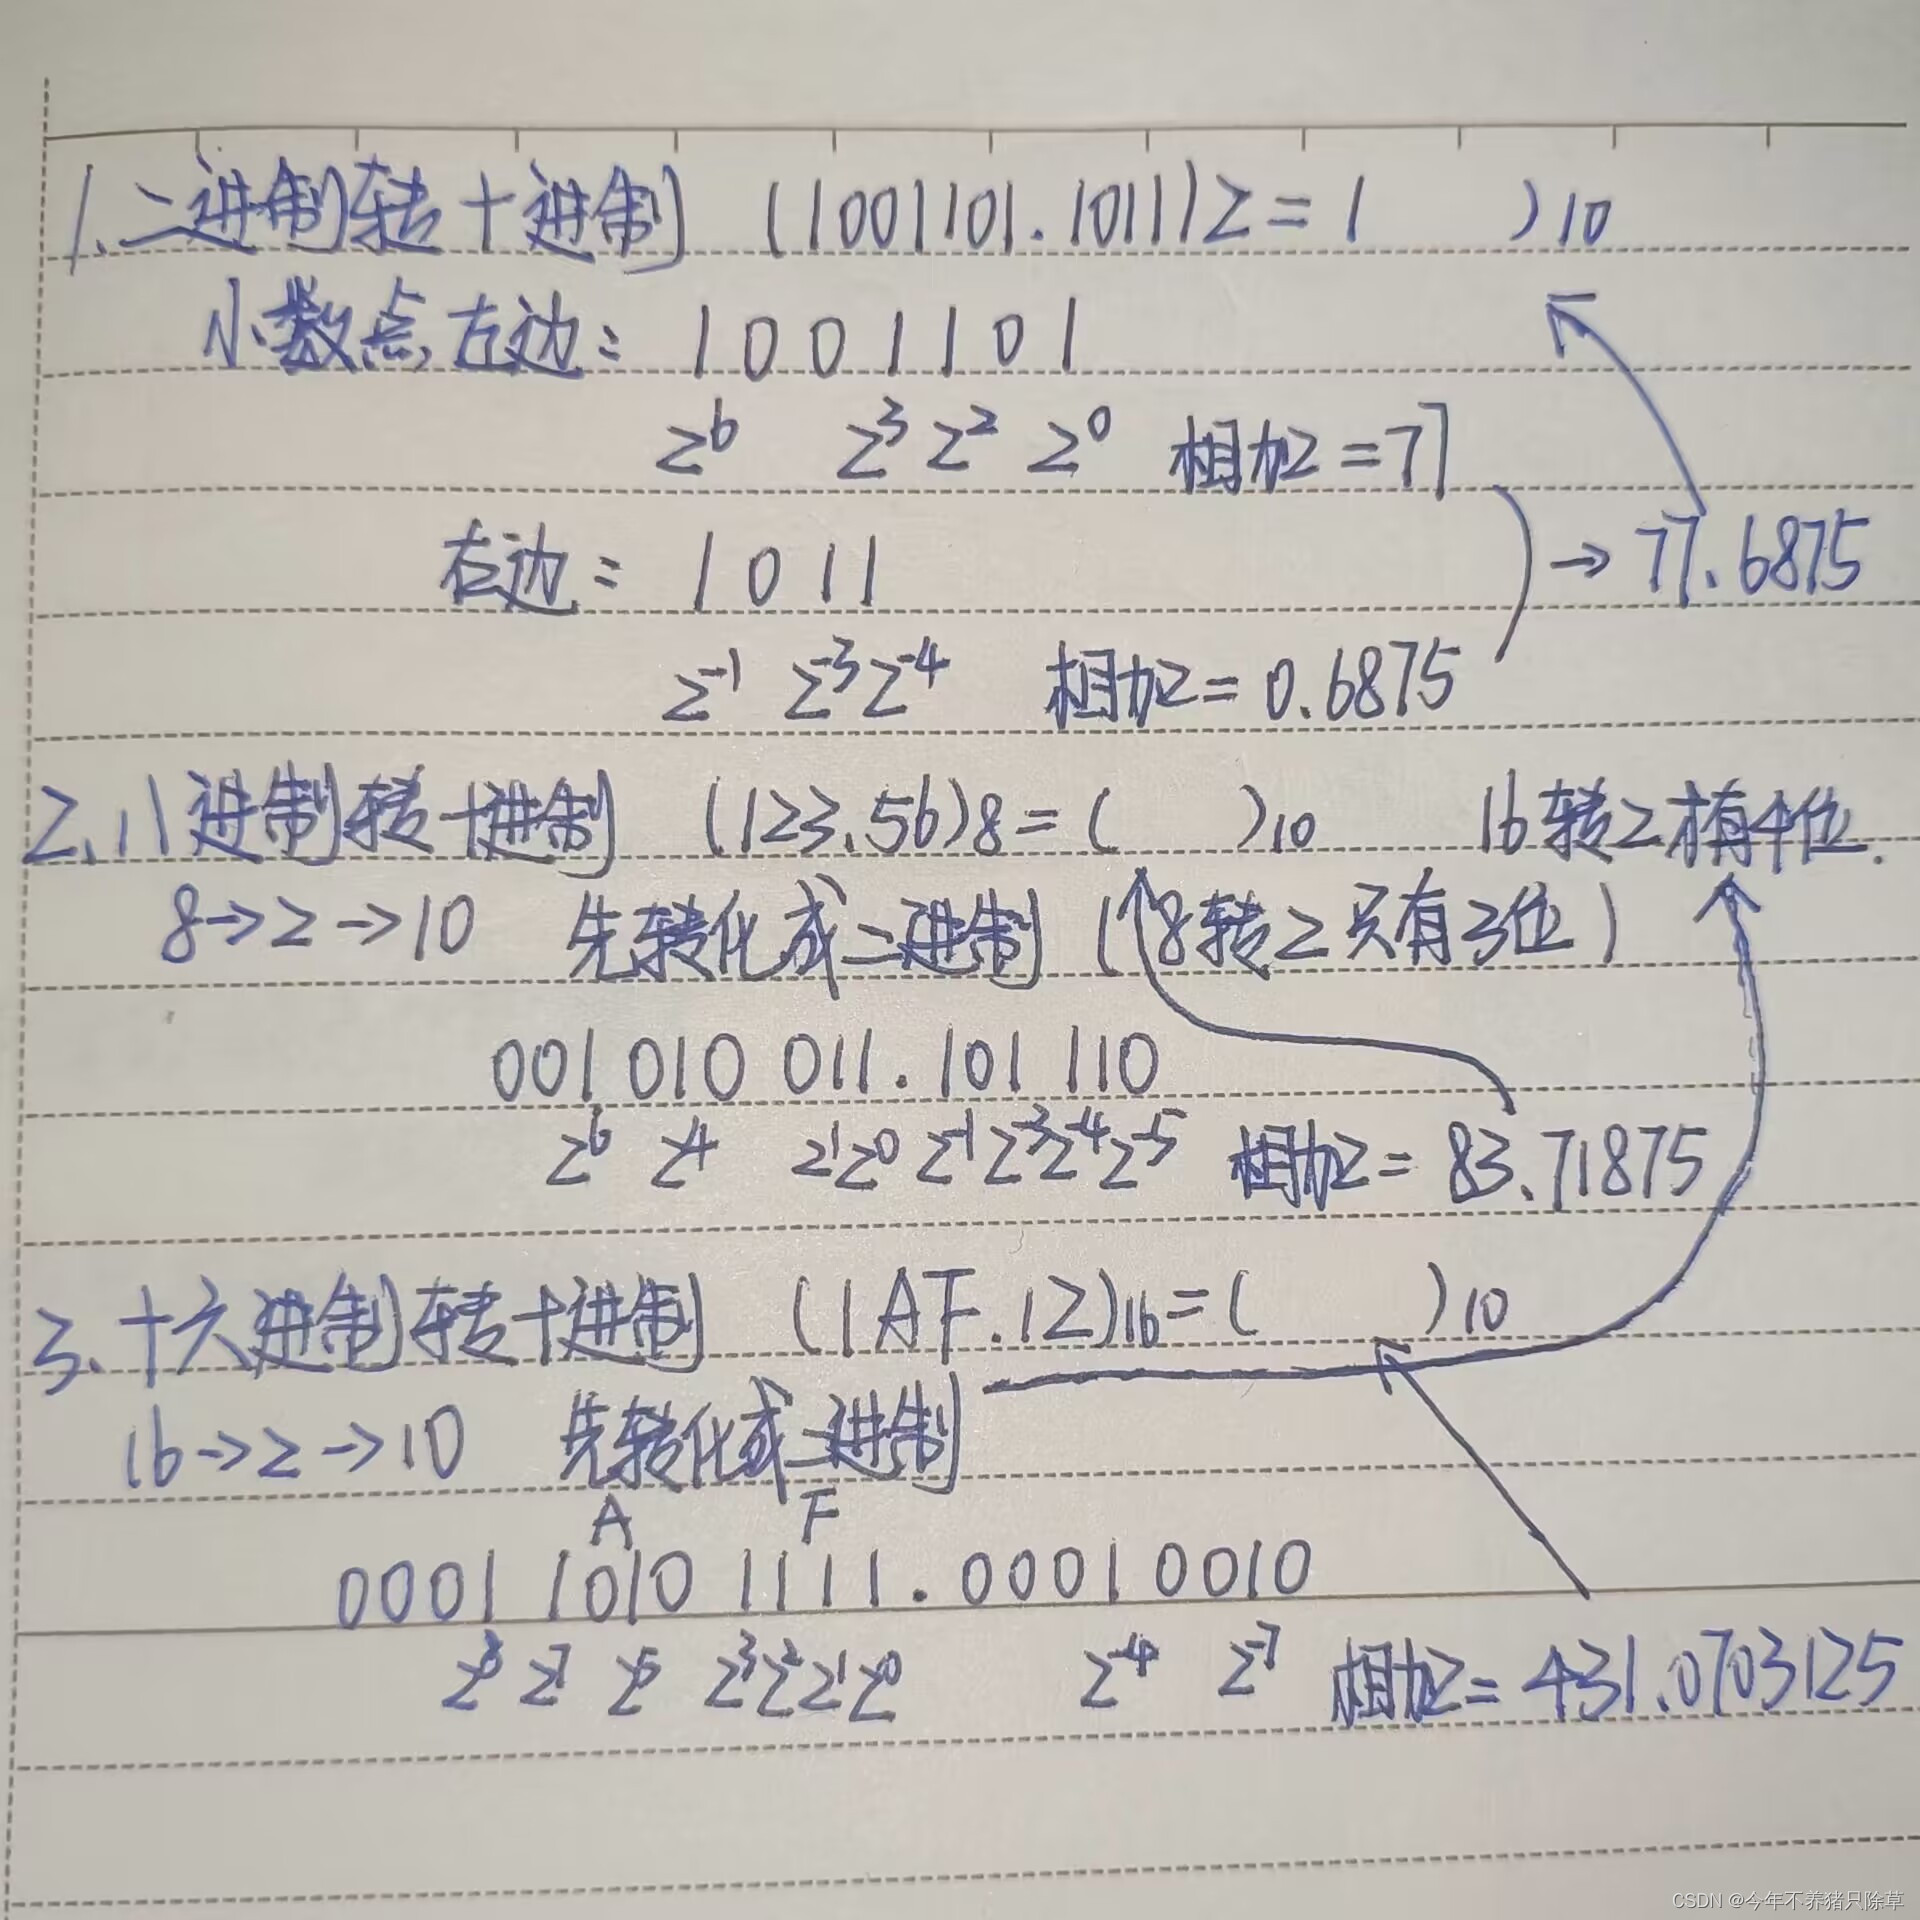 1.二进制转十进制 (1001101.1011)2=( )10
小数点左边: 1 0 0 1 1 0 1
2^6 2^3 2^2 2^0 相加=77
右边: 1 0 1 1 → 77.6875
2^-1 2^-3 2^-4 相加=0.6875
2.八进制转十进制 (123.56)8=( )10 16转2有4位.
8→2→10 先转化成二进制(8转2只有3位)
001 010 011.101 110
2^6 2^4 2^1 2^0 2^-1 2^-3 2^-4 2^-5 相加=83.71875
3.十六进制转十进制 (1AF.12)16=( )10
16→2→10 先转化成二进制
A F
0001 1010 1111.0001 0010
2^8 2^7 2^5 2^3 2^2 2^1 2^0 2^-4 2^-7 相加=431.0703125
CSDN @今年不养猪只除草